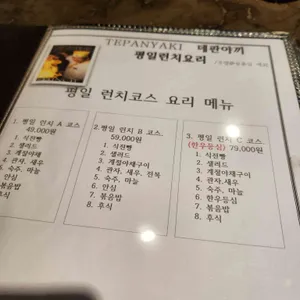 TEPANYAKI 데판야끼
평일런치요리
평일 런치코스 요리 메뉴
1. 평일 런치 A 코스
49,000원
1. 식전빵
2. 샐러드
3. 계절야채
4. 관자, 새우
5. 숙주, 마늘
6. 안심
7. 볶음밥
8. 후식
2. 평일 런치 B 코스
59,000원
1. 식전빵
2. 샐러드
3. 계절야채구이
4. 관자, 새우, 전복
5. 숙주, 마늘
6. 안심
7. 볶음밥
8. 후식
3. 평일 런치 C 코스
(한우등심) 79,000원
1. 식전빵
2. 샐러드
3. 계절야채구이
4. 관자, 새우
5. 숙주, 마늘
6. 한우등심
7. 볶음밥
8. 후식